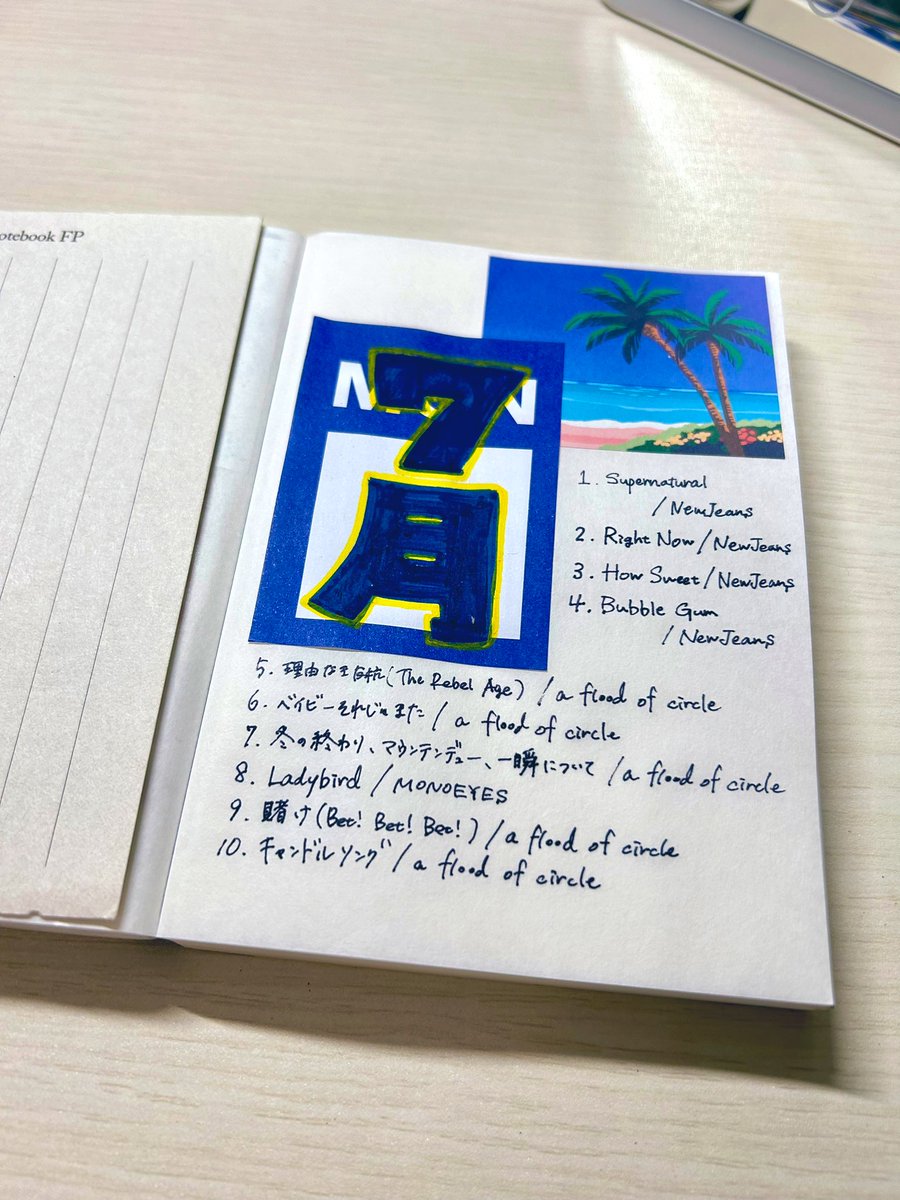 otebook FP
7
月
1. Supernatural
/NewJeans
2. Right Now/NewJeans
3. How Sweet/NewJeans
4. Bubble Gum
/NewJeans
5. 理由なき反抗(The Rebel Age)/a flood of circle
6. ベイビーそれじゃまた/a flood of circle
7. 冬の終わり、マウンテンデュー、一瞬について/a flood of circle
8. Ladybird/MONOEYES
9. 賭け(Bet! Bet! Bet!)/a flood of circle
10. キャンドルソング/a flood of circle